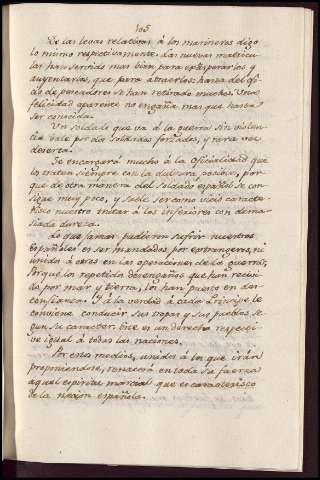 105
De las levas relativas á los marineros digo
lo mismo respectivamente. Las nuevas matricu-
las han servido mas bien para exâsperarlos y
auyentarlos, que para atraerlos: hasta del ofi-
cio de pescadores se han retirado muchos. Una
felicidad aparente no engaña mas que hasta
ser conocida.
Un soldado que va á la guerra sin violen-
cia vale por dos soldados forzados, y rara vez
deserta.
Se encargará mucho á la oficialidad que
lo traten siempre con la dulzura posible, por-
que de otra manera del soldado español se con-
sigue muy poco, y suele ser como vicio caracte-
ristico nuestro tratar á los inferiores con dema-
siada dureza.
Lo que jamas pudieron sufrir nuestros
Españoles es ser mandados por extrangeros, ni
unidos á otros en las operaciones de la guerra,
porque los repetidos desengaños que han recivi-
do por mar y tierra, los han puesto en des-
confianza. Y á la verdad á cada Principe le
conviene conducir sus tropas y sus pueblos se-
gun su caracter. Este es un derecho respecti-
vo igual á todas las naciones.
Por estos medios, unidos á los que irán
proponiendose, renacerá en toda su fuerza
aquel espiritu marcial que es caracteristico
de la nacion española.